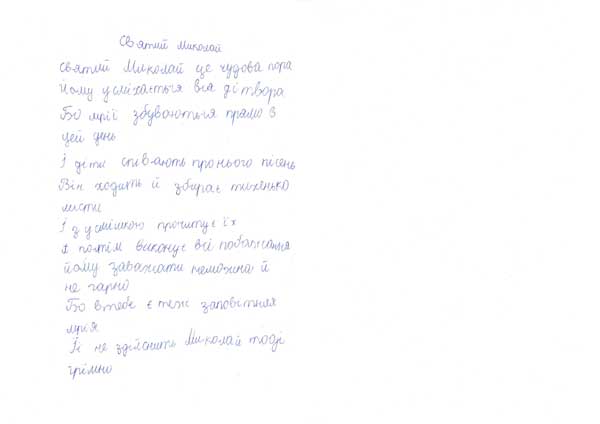 Святий Миколай
Святий Миколай це чудова пора
Йому усміхається вся дітвора
Бо мрії збуваються прямо в
цей день
І діти співають про нього пісень
Він ходить й збирає тихенько
листи
І з усмішкою прочитує їх
І потім виконує всі побажання
йому заважати неможна й
не гарно
Бо в тебе є теж заповітняя
мрія
Її не здіснить Миколай тоді